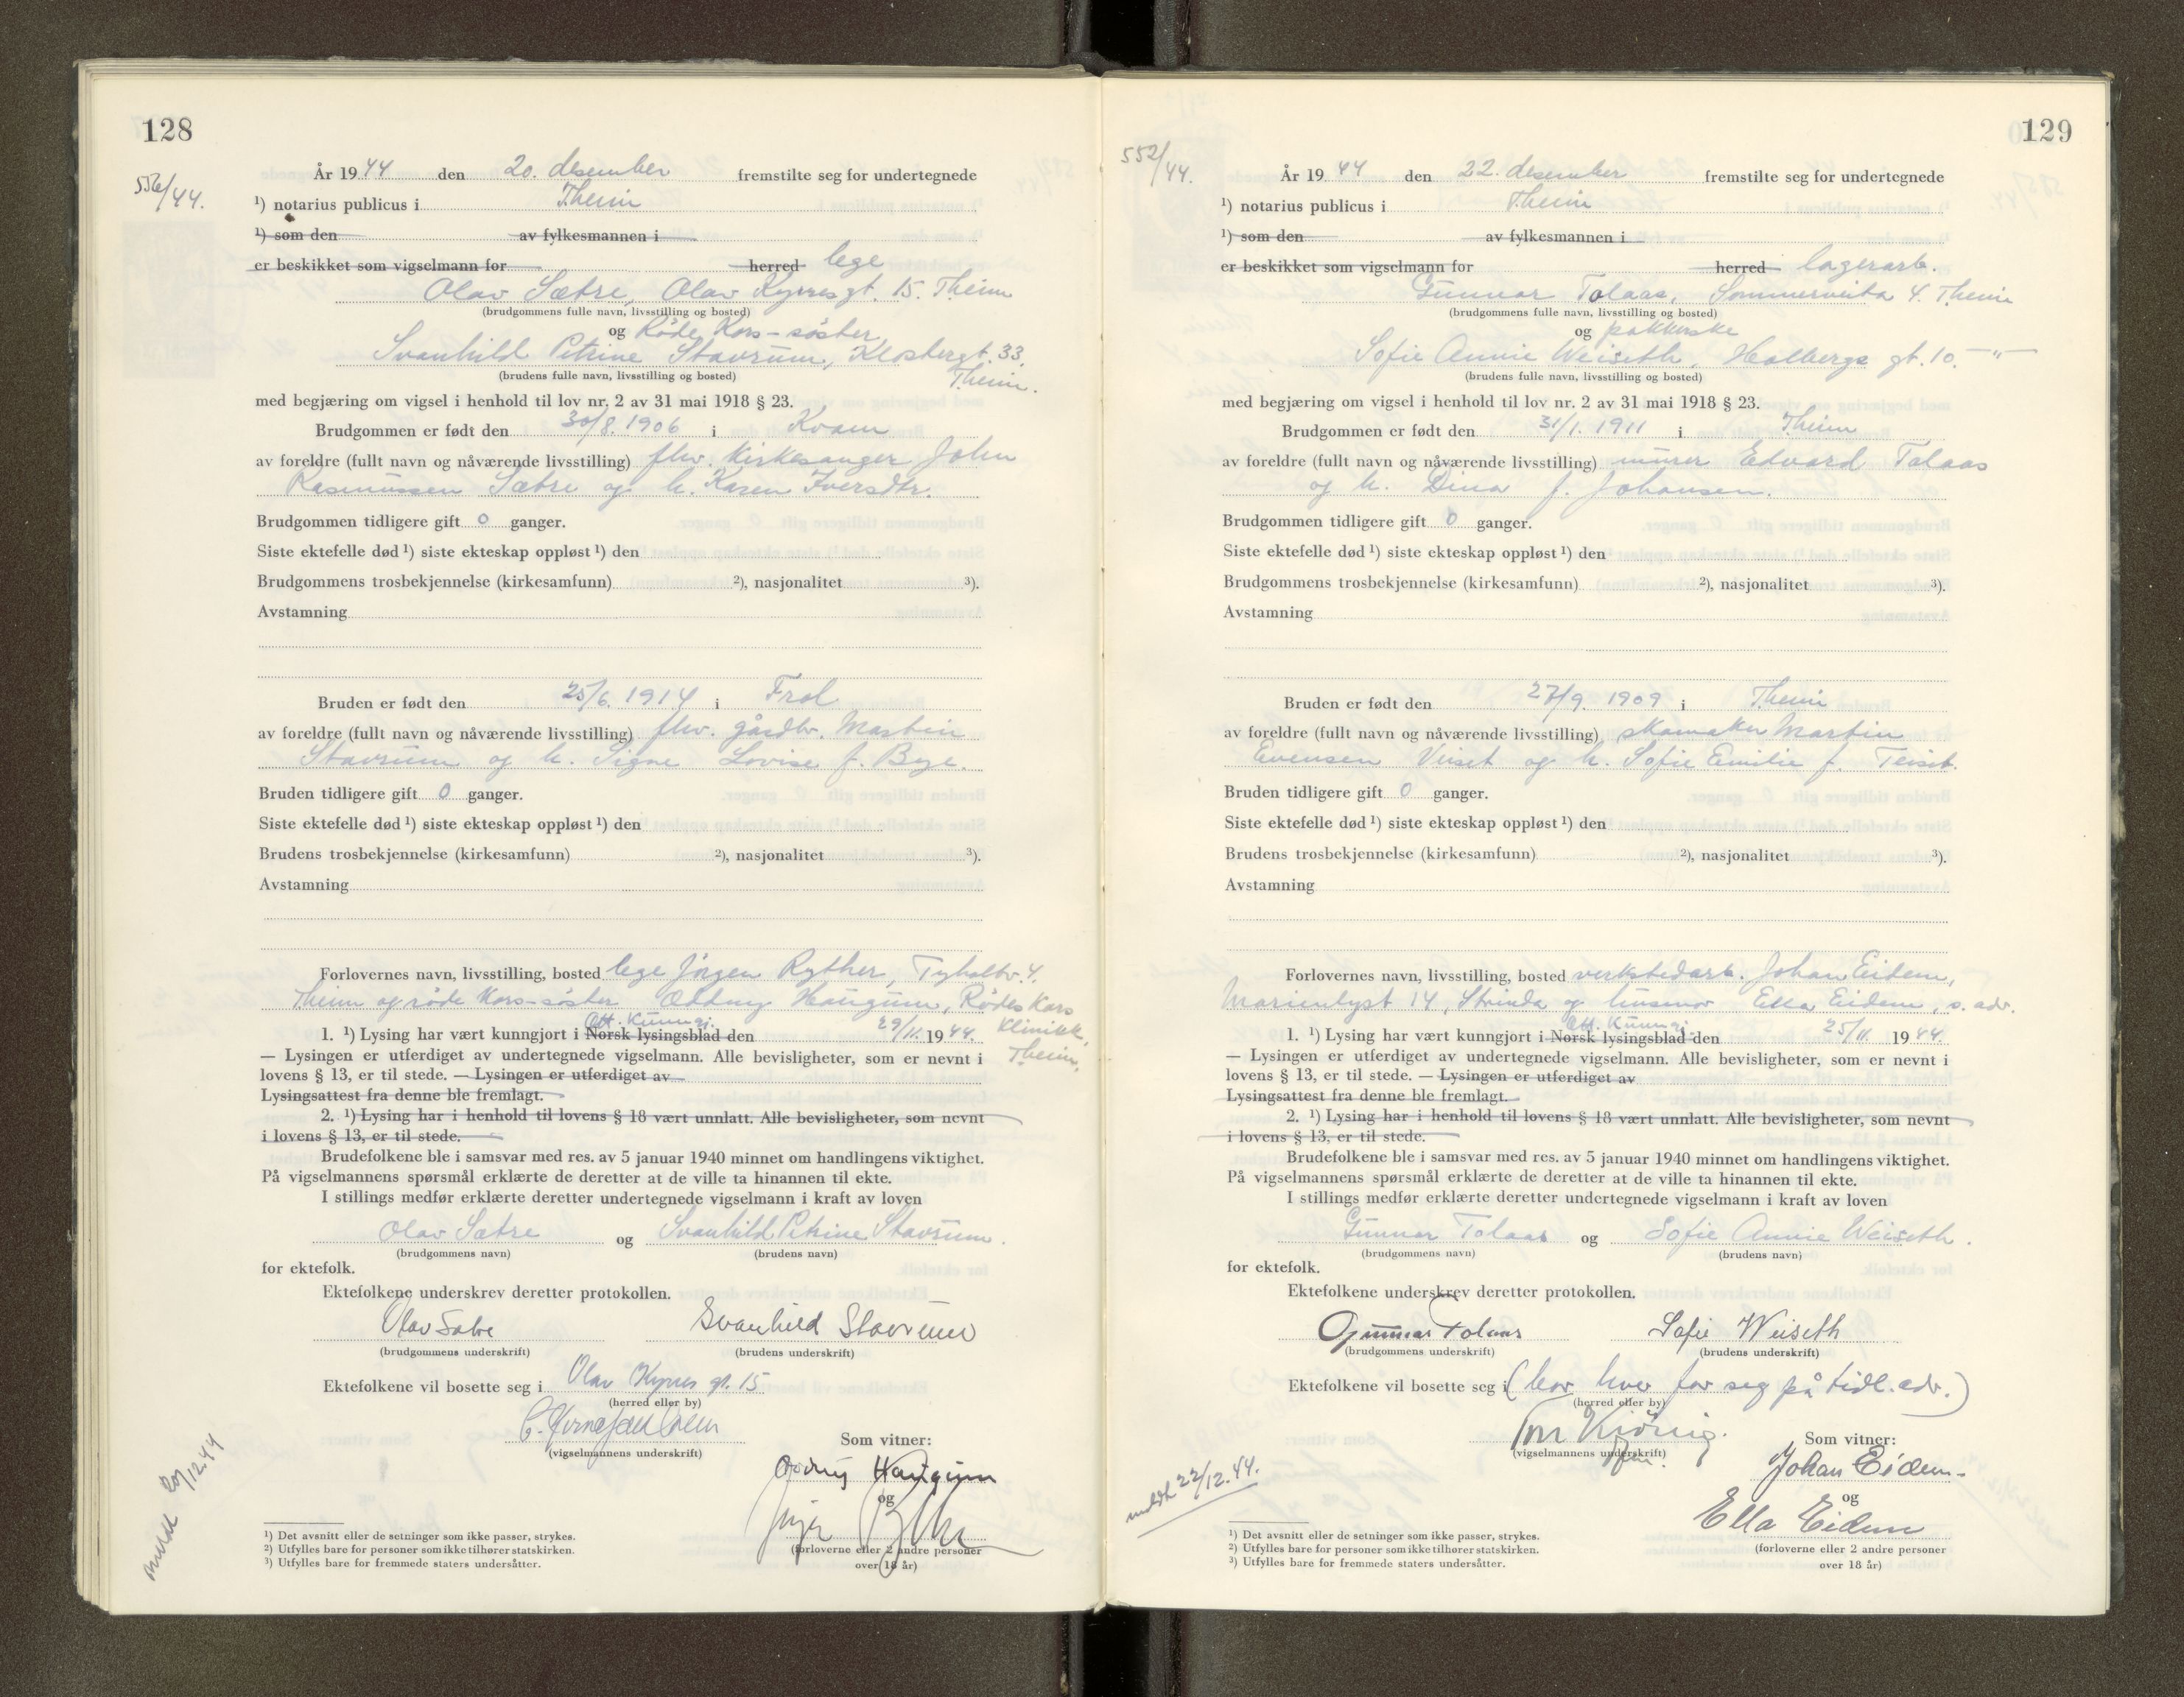 128
556/44.
År 1944 den 20. desember fremstilte seg for undertegnede
¹) notarius publicus i Theim
¹) som den av fylkesmannen i
er beskikket som vigselmann for herred lege
Olav Sætre, Olav Kyrres gt. 15. Theim
(brudgommens fulle navn, livsstilling og bosted)
og Røde Kors-søster
Svanhild Petrine Stavrum, Klostergt. 33,
Theim.
(brudens fulle navn, livsstilling og bosted)
med begjæring om vigsel i henhold til lov nr. 2 av 31 mai 1918 § 23.
Brudgommen er født den 30/8. 1906 i Kvam
av foreldre (fullt navn og nåværende livsstilling) fhv. kirkesanger John
Rasmussen Sætre og h. Karen Iversdtr.
Brudgommen tidligere gift 0 ganger.
Siste ektefelle død ¹) siste ekteskap oppløst ¹) den
Brudgommens trosbekjennelse (kirkesamfunn) ²), nasjonalitet ³).
Avstamning
Bruden er født den 25/6. 1914 i Frol
av foreldre (fullt navn og nåværende livsstilling) fhv. gårdbr. Martin
Stavrum og h. Signe Lovise f. Bye.
Bruden tidligere gift 0 ganger.
Siste ektefelle død ¹) siste ekteskap oppløst ¹) den
Brudens trosbekjennelse (kirkesamfunn) ²), nasjonalitet ³).
Avstamning
Forlovernes navn, livsstilling, bosted lege Jørgen Ryther, Tyholtv. 4.
Theim og røde Kors-søster Oddny Haugum, Røde Kors
Klinikk,
Theim.
Att. Kunngj.
1. ¹) Lysing har vært kunngjort i Norsk lysingsblad den 29/11. 1944.
— Lysingen er utferdiget av undertegnede vigselmann. Alle bevisligheter, som er nevnt i
lovens § 13, er til stede. — Lysingen er utferdiget av
Lysingsattest fra denne ble fremlagt.
2. ¹) Lysing har i henhold til lovens § 18 vært unnlatt. Alle bevisligheter, som nevnt
i lovens § 13, er til stede.
Brudefolkene ble i samsvar med res. av 5 januar 1940 minnet om handlingens viktighet.
På vigselmannens spørsmål erklærte de deretter at de ville ta hinannen til ekte.
I stillings medfør erklærte deretter undertegnede vigselmann i kraft av loven
Olav Sætre og Svanhild Petrine Stavrum.
(brudgommens navn) (brudens navn)
for ektefolk.
Ektefolkene underskrev deretter protokollen.
Olav Sætre Svanhild Stavrum
(brudgommens underskrift) (brudens underskrift)
Ektefolkene vil bosette seg i Olav Kyrres gt. 15
(herred eller by)
(vigselmannens underskrift)
Som vitner:
Oddny Haugum
og
(forloverne eller 2 andre personer
over 18 år)
meldt 20/12.44
¹) Det avsnitt eller de setninger som ikke passer, strykes.
²) Utfylles bare for personer som ikke tilhører statskirken.
³) Utfylles bare for fremmede staters undersåtter.
129
552/44.
År 1944 den 22. desember fremstilte seg for undertegnede
¹) notarius publicus i Theim
¹) som den av fylkesmannen i
er beskikket som vigselmann for herred lagerarb.
Gunnar Tolaas, Sommerveita 4. Theim
(brudgommens fulle navn, livsstilling og bosted)
og pakkerske
Sofie Annie Weiseth, Holbergs gt. 10. —"—
(brudens fulle navn, livsstilling og bosted)
med begjæring om vigsel i henhold til lov nr. 2 av 31 mai 1918 § 23.
Brudgommen er født den 31/1. 1911 i Theim
av foreldre (fullt navn og nåværende livsstilling) murer Edvard Tolaas
og h. Dina f. Johansen.
Brudgommen tidligere gift 0 ganger.
Siste ektefelle død ¹) siste ekteskap oppløst ¹) den
Brudgommens trosbekjennelse (kirkesamfunn) ²), nasjonalitet ³).
Avstamning
Bruden er født den 27/9. 1909 i Theim
av foreldre (fullt navn og nåværende livsstilling) skomaker Martin
Evensen Viset og h. Sofie Emilie f. Teiset.
Bruden tidligere gift 0 ganger.
Siste ektefelle død ¹) siste ekteskap oppløst ¹) den
Brudens trosbekjennelse (kirkesamfunn) ²), nasjonalitet ³).
Avstamning
Forlovernes navn, livsstilling, bosted verkstedarb. Johan Eidem,
Marienlyst 14, Strinda og husmor Ella Eidem, s. adr.
Att. Kunngj.
1. ¹) Lysing har vært kunngjort i Norsk lysingsblad den 25/11. 1944.
— Lysingen er utferdiget av undertegnede vigselmann. Alle bevisligheter, som er nevnt i
lovens § 13, er til stede. — Lysingen er utferdiget av
Lysingsattest fra denne ble fremlagt.
2. ¹) Lysing har i henhold til lovens § 18 vært unnlatt. Alle bevisligheter, som nevnt
i lovens § 13, er til stede.
Brudefolkene ble i samsvar med res. av 5 januar 1940 minnet om handlingens viktighet.
På vigselmannens spørsmål erklærte de deretter at de ville ta hinannen til ekte.
I stillings medfør erklærte deretter undertegnede vigselmann i kraft av loven
Gunnar Tolaas og Sofie Annie Weiseth.
(brudgommens navn) (brudens navn)
for ektefolk.
Ektefolkene underskrev deretter protokollen.
Gunnar Tolaas Sofie Weiseth
(brudgommens underskrift) (brudens underskrift)
Ektefolkene vil bosette seg i (bor hver for seg på tidl. adr.)
(herred eller by)
(vigselmannens underskrift)
Som vitner:
Johan Eidem
og
Ella Eidem
(forloverne eller 2 andre personer
over 18 år)
meldt 22/12.44.
¹) Det avsnitt eller de setninger som ikke passer, strykes.
²) Utfylles bare for personer som ikke tilhører statskirken.
³) Utfylles bare for fremmede staters undersåtter.